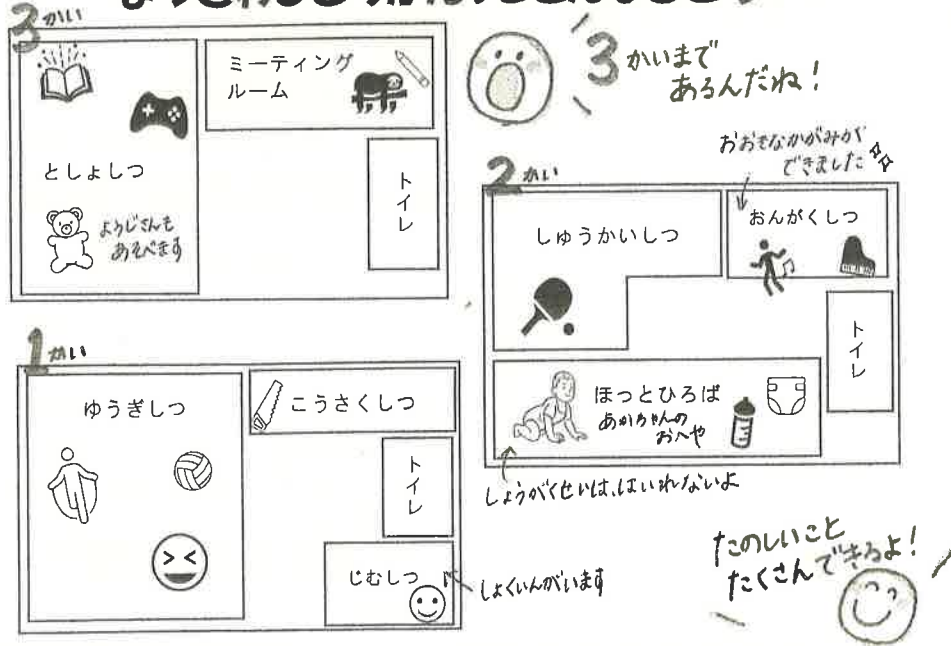 3かい
ミーティング
ルーム
としょしつ
ようじさんも
あそべます
トイレ
3かいまで
あるんだね！
2かい
おおきなかがみが
できました
しゅうかいしつ
おんがくしつ
トイレ
ほっとひろば
あかちゃんの
おへや
しょうがくせいは、はいれないよ
1かい
ゆうぎしつ
こうさくしつ
トイレ
じむしつ
しょくいんがいます
たのしいこと
たくさんできるよ！